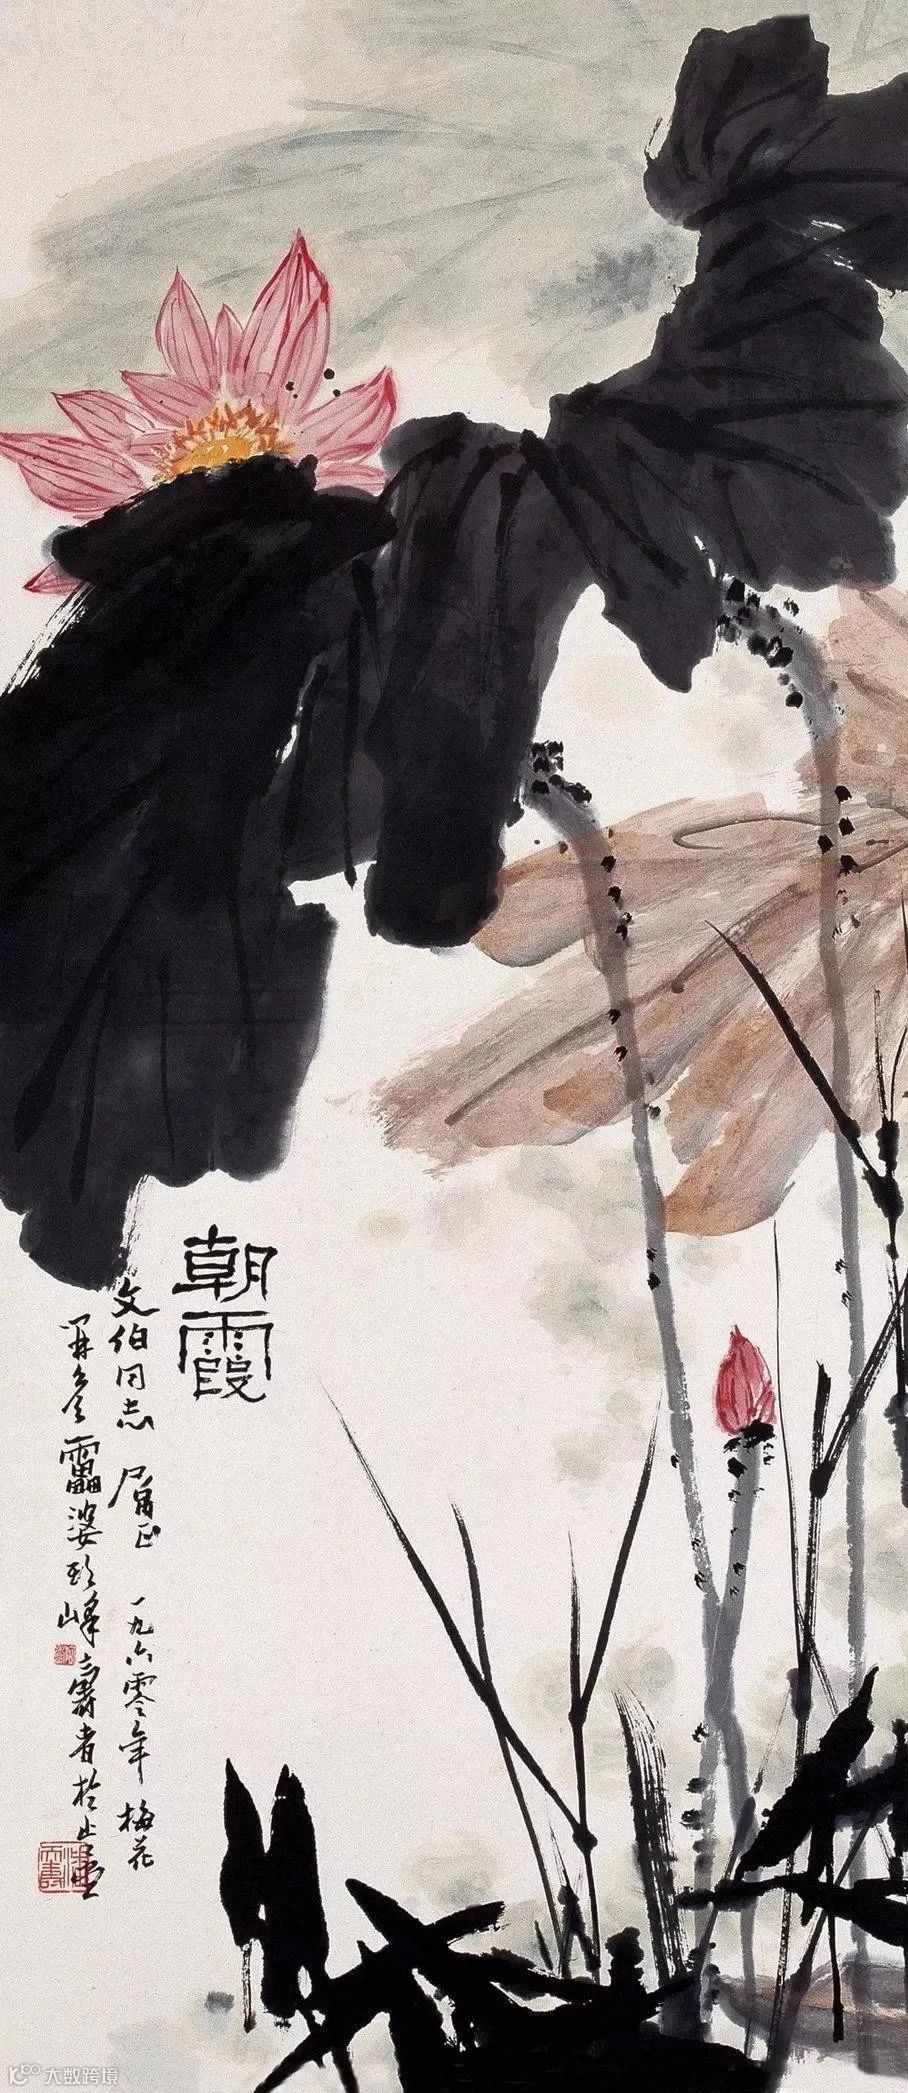 朝霞
文伯同志 属正 一九六零年 梅花
开候 雷婆头峰寿者於止止堂
大数跨境